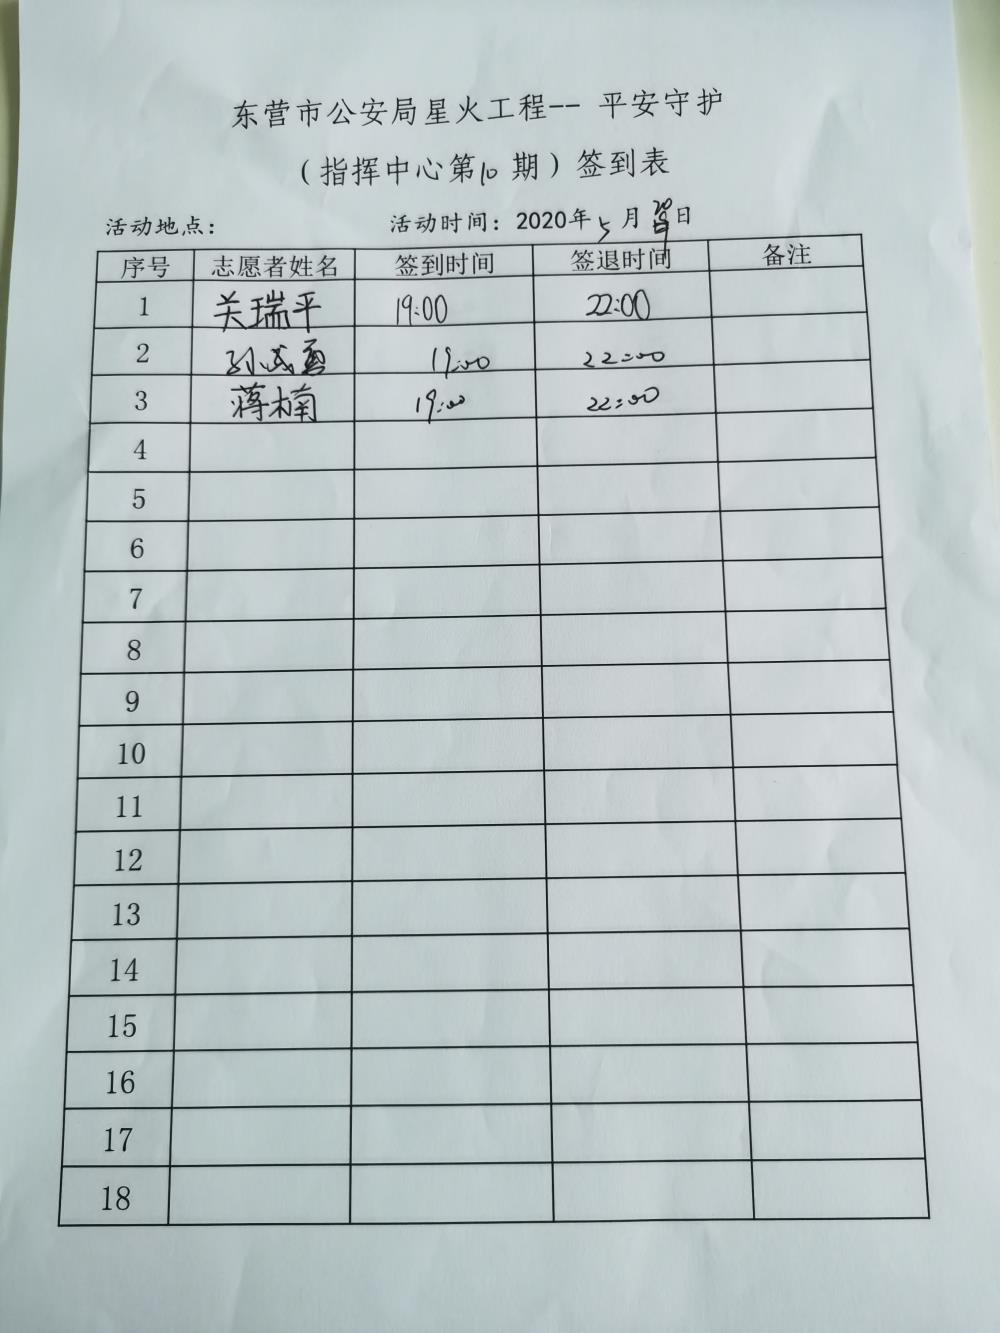 东营市公安局星火工程-- 平安守护
（指挥中心第10期）签到表
活动地点： 活动时间：2020年5月20日
序号 志愿者姓名 签到时间 签退时间 备注
1 关瑞平 19:00 22:00
2 孙 19:00 22:00
3 蒋楠 19:00 22:00
4
5
6
7
8
9
10
11
12
13
14
15
16
17
18